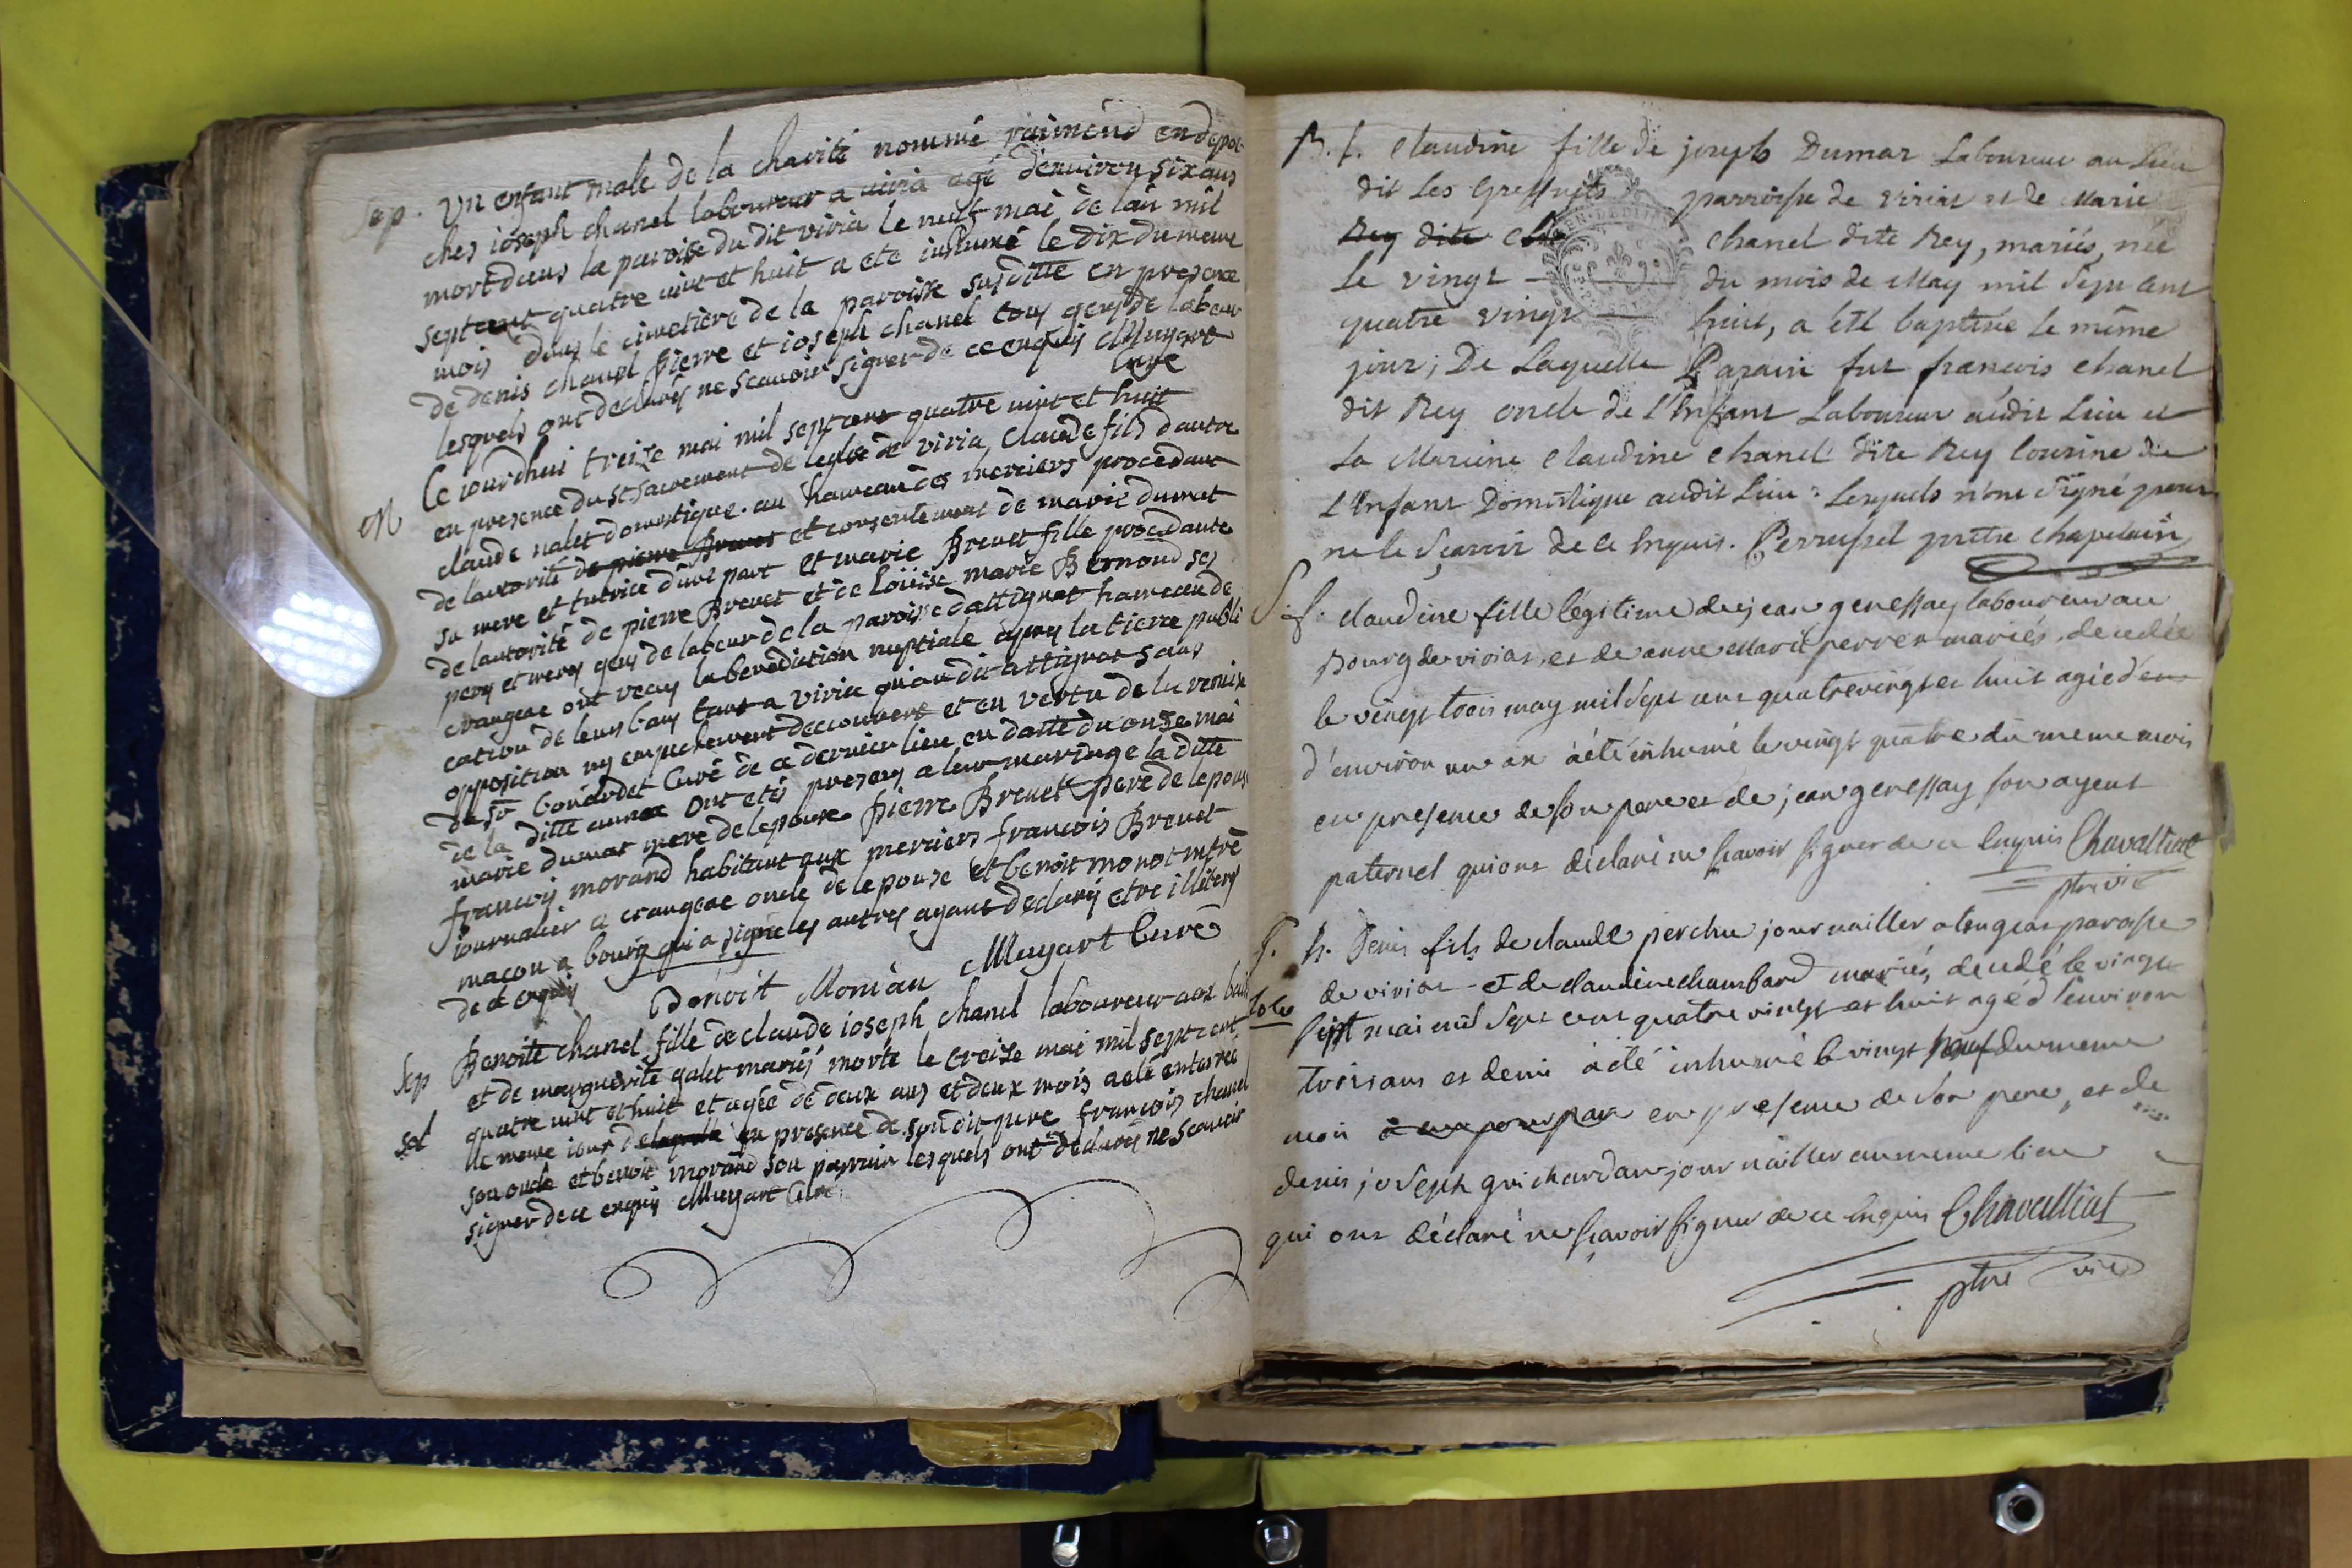 Sep. Un enfant male de la charité nommé raimend en depot
ches ioseph chanel laboureur a viria agé denuiron six ans
mort dans la paroisse du dit viria le neuf mai de lan mil
septcent quatre vint et huit a ete inhumé le dix du meme
mois dans le cimetiere de la paroisse susditte en presence
de denis chanel pierre et ioseph chanel tous gens de labeur
lesquels ont declarés ne scauoir signer de ce enquis Muyart
Curé
M Ce iourdhui treize mai mil septcent quatre vint et huit
en presence du st sacrement de leglise de viria Claude fils dautre
claude nalet domestique au hameau des merciers procedant
de lautorité de pierre Brevet et consentement de marie dumat
sa mere et tutrice dune part et marie Brevet fille procedante
de lautorité de pierre Brevet et de Loüise marie Bernoud ses
peres et meres gens de labeur de la paroisse dattignat hameau de
crangeac ont recus la benediction nuptiale apres la tierce publi
cation de leurs bans tant a viria quau dit attignat sans
opposition ny empechement decouvert et en vertu de la remise
de sr Gonardet Curé de ce dernier lieu en datte du onze mai
de la ditte année ont etés presens a leur mariage la ditte
marie dumat mere de lepoux pierre Brevet pere de lepouse
francois morand habitant aux merciers francois Brevet
iournalier a crangeac oncle de lepouse et benoit monot mtre
macon a bourg qui a signé les autres ayant declarés etre illiterés
de ce enquis
Benoit Monian Muyart Curé
Sep Benoite chanel fille de claude ioseph chanel laboureur aux
et de marguerite galet mariés morte le treize mai mil septcent
sol quatre vint et huit et agée de deux ans et deux mois a eté enterrée
le meme iour de laquelle en presence de son dit pere francois chanel
son oncle et benoit morand son parrain lesquels ont declarés ne scauoir
signer de ce enquis Muyart Curé
B. f. Claudine fille de joseph Dumas Laboureur au Lieu
dit Les Greffets parroisse de viriat et de Marie
Rey dite Cha chanel dite Rey, mariés, née
Le vingt — du mois de May mil Sept cent
quatre vingt — huit, a été baptisée le même
jour; De Laquelle Parain fut francois chanel
dit Rey oncle de L'Enfant Laboureur audit Lieu et
La Mareine Claudine chanel dite Rey Cousine de
L'Enfant Domestique audit Lieu: Lesquels n'ont Signé pour
ne le Sçavoir de ce Enquis. Perrussel prêtre chapelain
S. f. Claudine fille légitime de jean genessay laboureur au
Bourg de viriat, et de anne marie perret mariés, decedée
le vingt trois may mil Sept cent quatre vingt et huit agée d'en
d'environ un an à été inhumé le vingt quatre du meme mois
en presence de son pere et de jean genessay son ayeul
paternel qui ont déclaré ne sçavoir signer de ce Enquis Chavalliat
ptre vic
S. h. Denis fils de claude perchu journailler a tingeat paroisse
de viriat et de claudine chambard mariés, decedé le vingt
Sept mai mil Sept cent quatre vingt et huit agé d'environ
trois ans et demi à été inhumé le vingt neuf du meme
mois en presence de son pere, et de
denis joseph guichardan journailler au meme lieu
qui ont déclaré ne sçavoir signer de ce Enquis Chavalliat
ptre vic